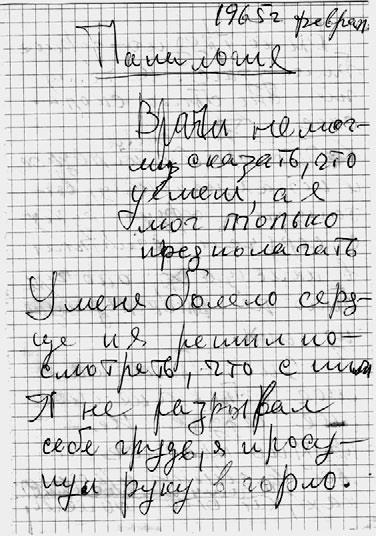 1965 г феврал
Паталогия
Врачи не мог-
ли сказать, что
у меня, а я
мог только
предполагать
У меня болело серд-
це и я решил по-
смотреть, что с ним
Я не разрывал
себе грудь, я просу-
нул руку в горло.